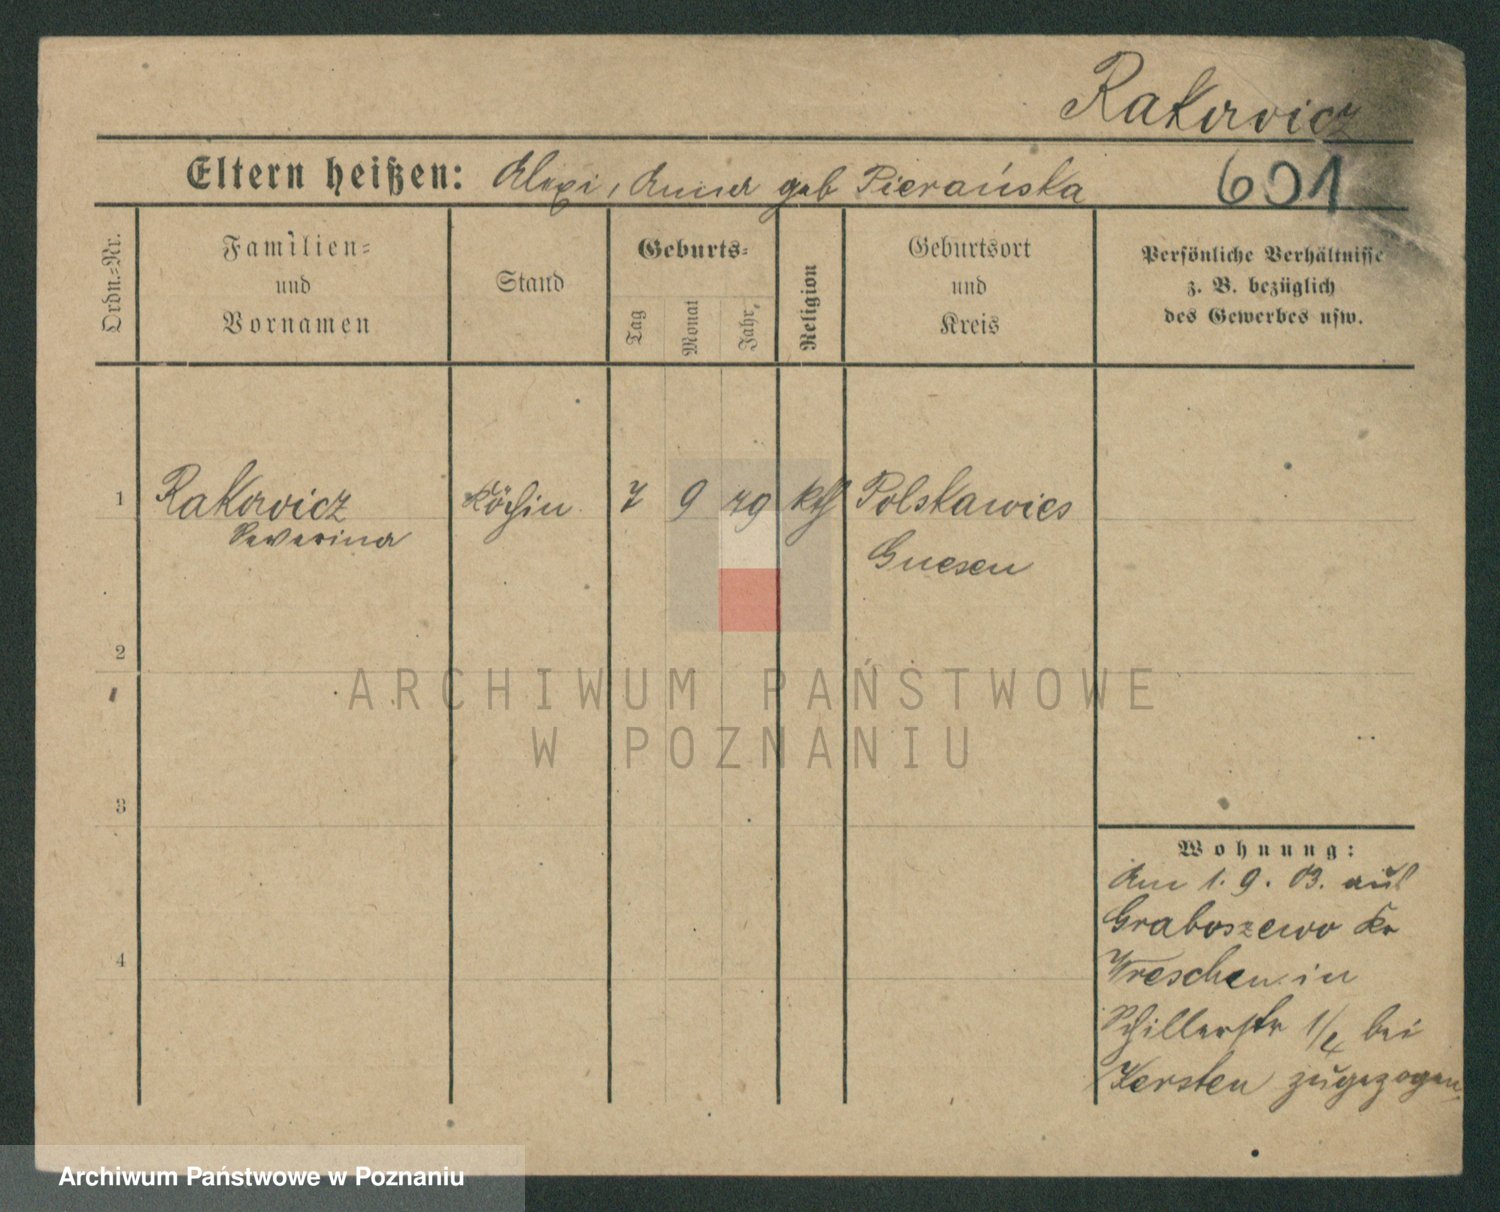 Rakowicz
Eltern heißen: Alexi, Anna geb Pierańska
601
Ordn.-Nr.
Familien-
und
Vornamen
Stand
Geburts-
Tag
Monat
Jahr,
Religion
Geburtsort
und
Kreis
Persönliche Verhältnisse
z. B. bezüglich
des Gewerbes usw.
1 Rakowicz Köchin 7 9 79 kth Polskawies
Severina Gnesen
2
3
4
Wohnung:
Am 1. 9. 03. aus
Graboszewo Kr
Wreschen in
Schillerstr 1/4 bei
Kersten zugezogen.
ARCHIWUM PAŃSTWOWE
W POZNANIU
Archiwum Państwowe w Poznaniu